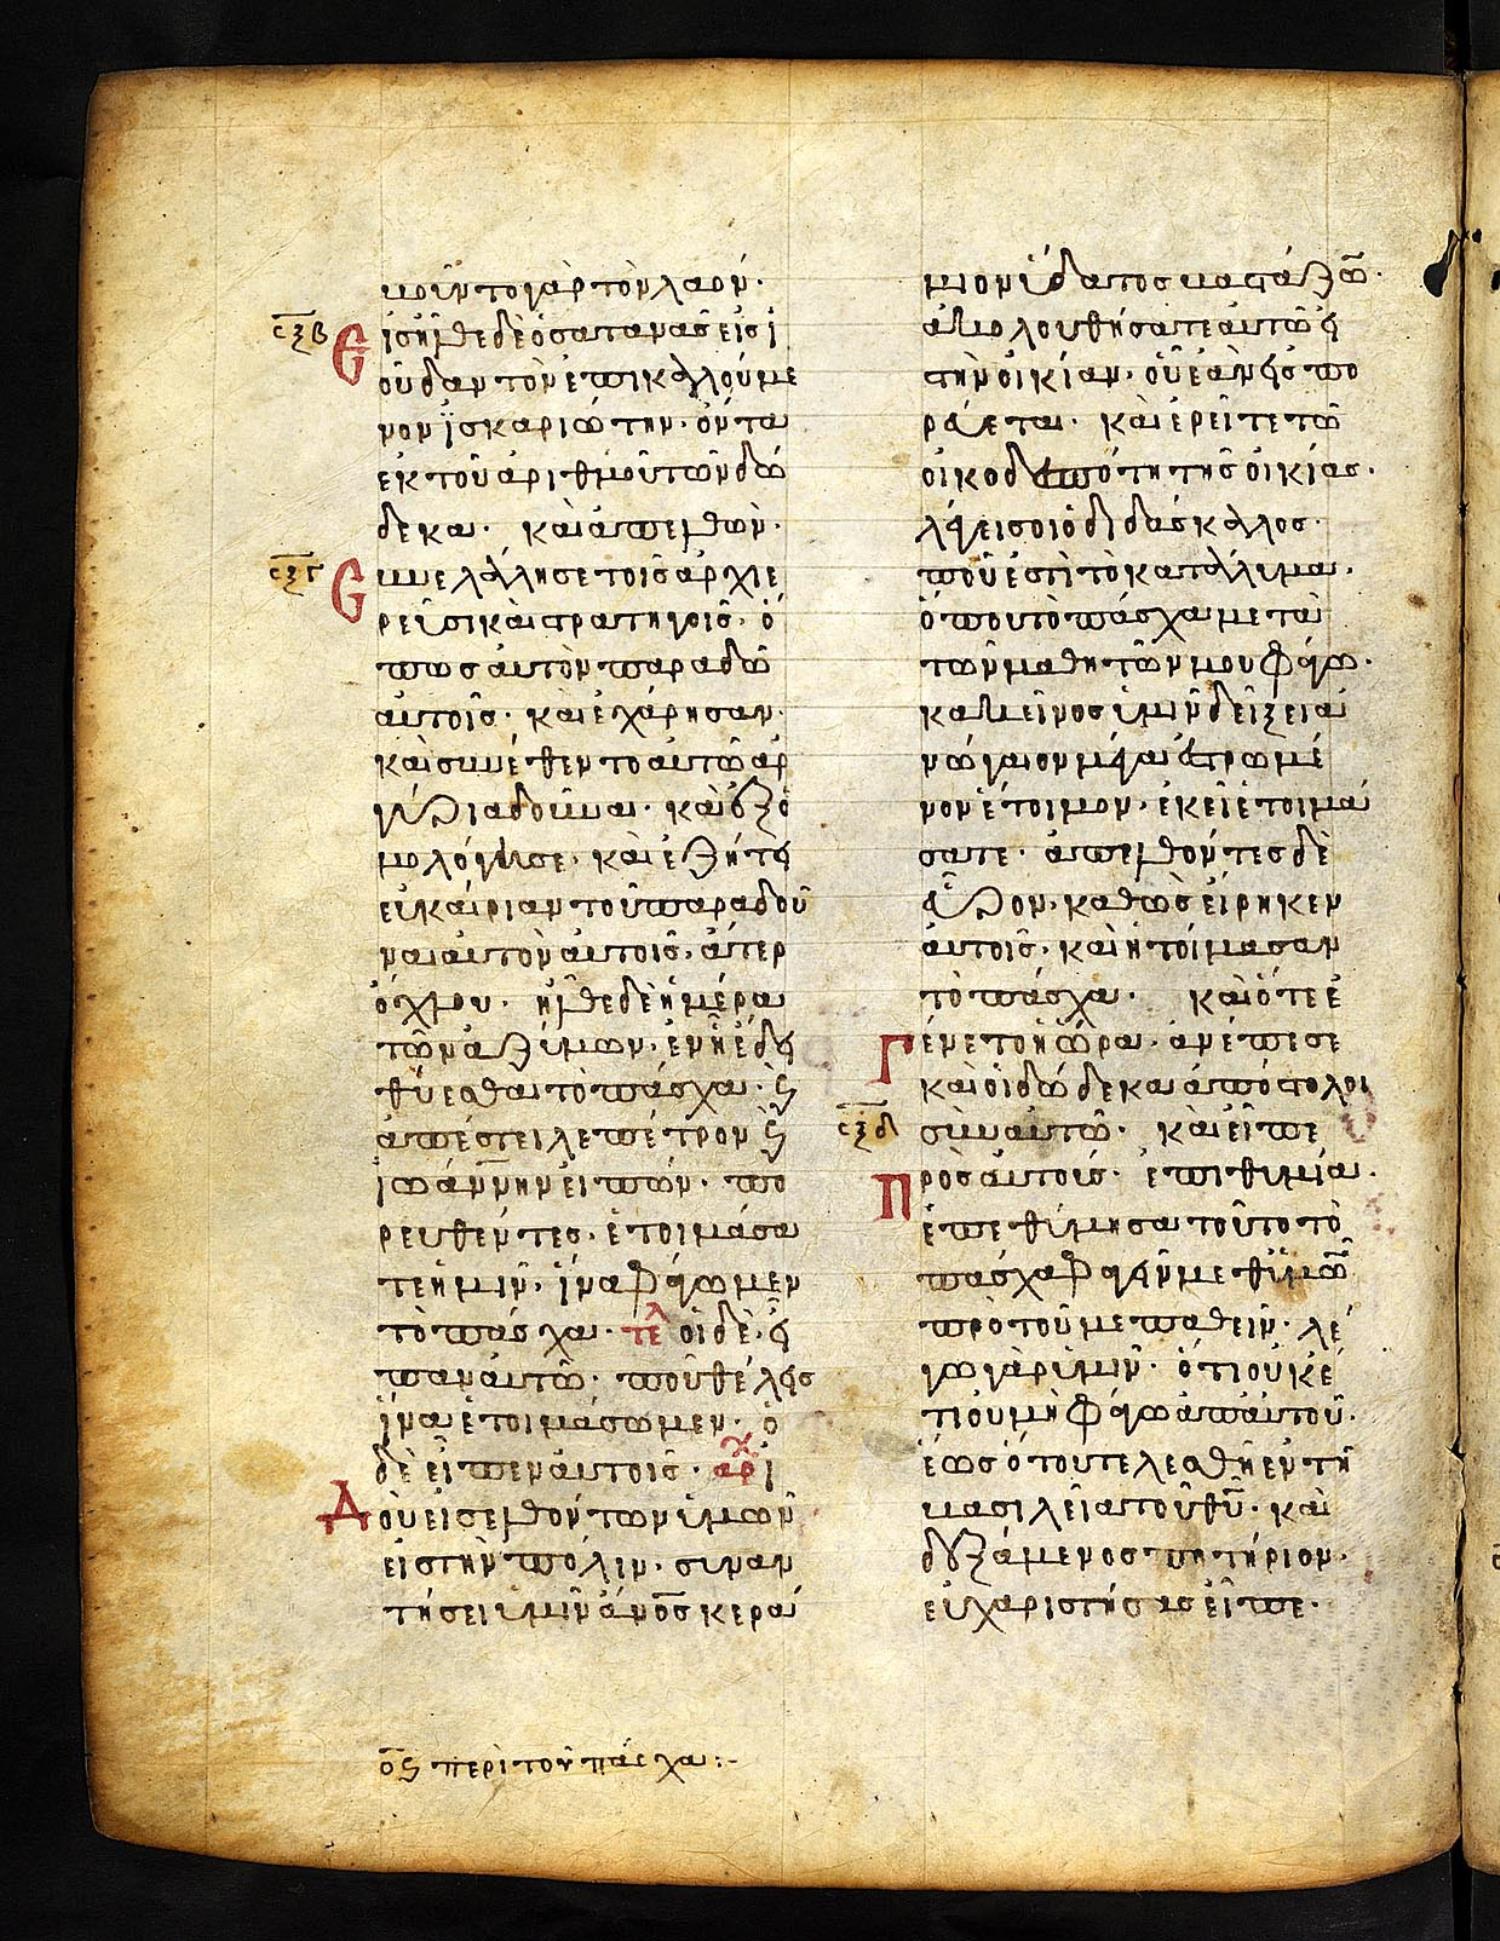 βοῦντο γὰρ τὸν λαόν·
σξβ Εἰσῆλθε δὲ ὁ σατανᾶς εἰς ἰ
ούδαν τὸν ἐπικαλούμε
νον ἰσκαριώτην· ὄντα
ἐκ τοῦ ἀριθμοῦ τῶν δώ
δεκα· καὶ ἀπελθὼν·
σξγ Συνελάλησε τοῖς ἀρχιε
ρεῦσι καὶ στρατηγοῖς· ὅ
πως αὐτὸν παραδῶ
αὐτοῖς· καὶ ἐχάρησαν·
καὶ συνέθεντο αὐτῶ ἀρ
γύρια δοῦναι· καὶ ἐξο
μολόγησε· καὶ ἐζήτει
εὐκαιρίαν τοῦ παραδοῦ
ναι αὐτὸν αὐτοῖς· ἄτερ
ὄχλου· ἦλθε δὲ ἡ μέρα
τῶν ἀζύμων· ἐν ἧ ἔδει
θύεσθαι τὸ πάσχα· καὶ
ἀπέστειλε πέτρον καὶ
ἰωάννην εἰπών· πο
ρευθέντες· ἑτοιμάσα
τε ἡμῖν· ἵνα φάγωμεν
τὸ πάσχα· τελ οἱ δὲ· εἶ
παν αὐτῶ· ποῦ θέλεις
ἵνα ἑτοιμάσωμεν· ὁ
δὲ εἶπεν αὐτοῖς· αρχ ἰ
Δοὺ εἰσελθόντων ὑμῶν
εἰς τὴν πόλιν· συναν
τήσει ὑμῖν ἄνος κερά
μιον ὕδατος βαστάζων·
ἀκολουθήσατε αὐτῶ εἰς
τὴν οἰκίαν· οὗ ἐὰν εἰσπο
ρεύεται· καὶ ἐρεῖτε τῶ
οἰκοδεσπότη τῆς οἰκίας·
λέγει σοι ὁ διδάσκαλος·
ποῦ ἐστὶ τὸ κατάλυμα·
ὅπου τὸ πάσχα μετὰ
τῶν μαθητῶν μου φάγω·
κακεῖνος ὑμῖν δείξει ἀ
νώγαιον μέγα ἐστρωμέ
νον ἕτοιμον· ἐκεῖ ἑτοιμά
σατε· ἀπελθόντες δὲ
εὗρον· καθὼς εἴρηκεν
αὐτοῖς· καὶ ἡτοίμασαν
τὸ πάσχα· καὶ ὅτε ἐ
Γένετο ἡ ὥρα· ἀνέπεσε
καὶ οἱ δώδεκα ἀπόστολοι
σξδ σὺν αὐτῶ· καὶ εἶπε
Πρὸς αὐτούς· ἐπιθυμία·
ἐπεθύμησα τοῦτο τὸ
πάσχα φαγεῖν μεθ' ὑμῶν
πρὸ τοῦ με παθεῖν· λέ
γω γὰρ ὑμῖν· ὅτι οὐκέ
τι οὐ μὴ φάγω ἀπ' αὐτοῦ·
ἕως ὅτου τελεσθῆ ἐν τῆ
βασιλεία τοῦ θυ· καὶ
δεξάμενος ποτήριον·
εὐχαριστήσας εἶπε·
ος περὶ τοῦ πάσχα:-